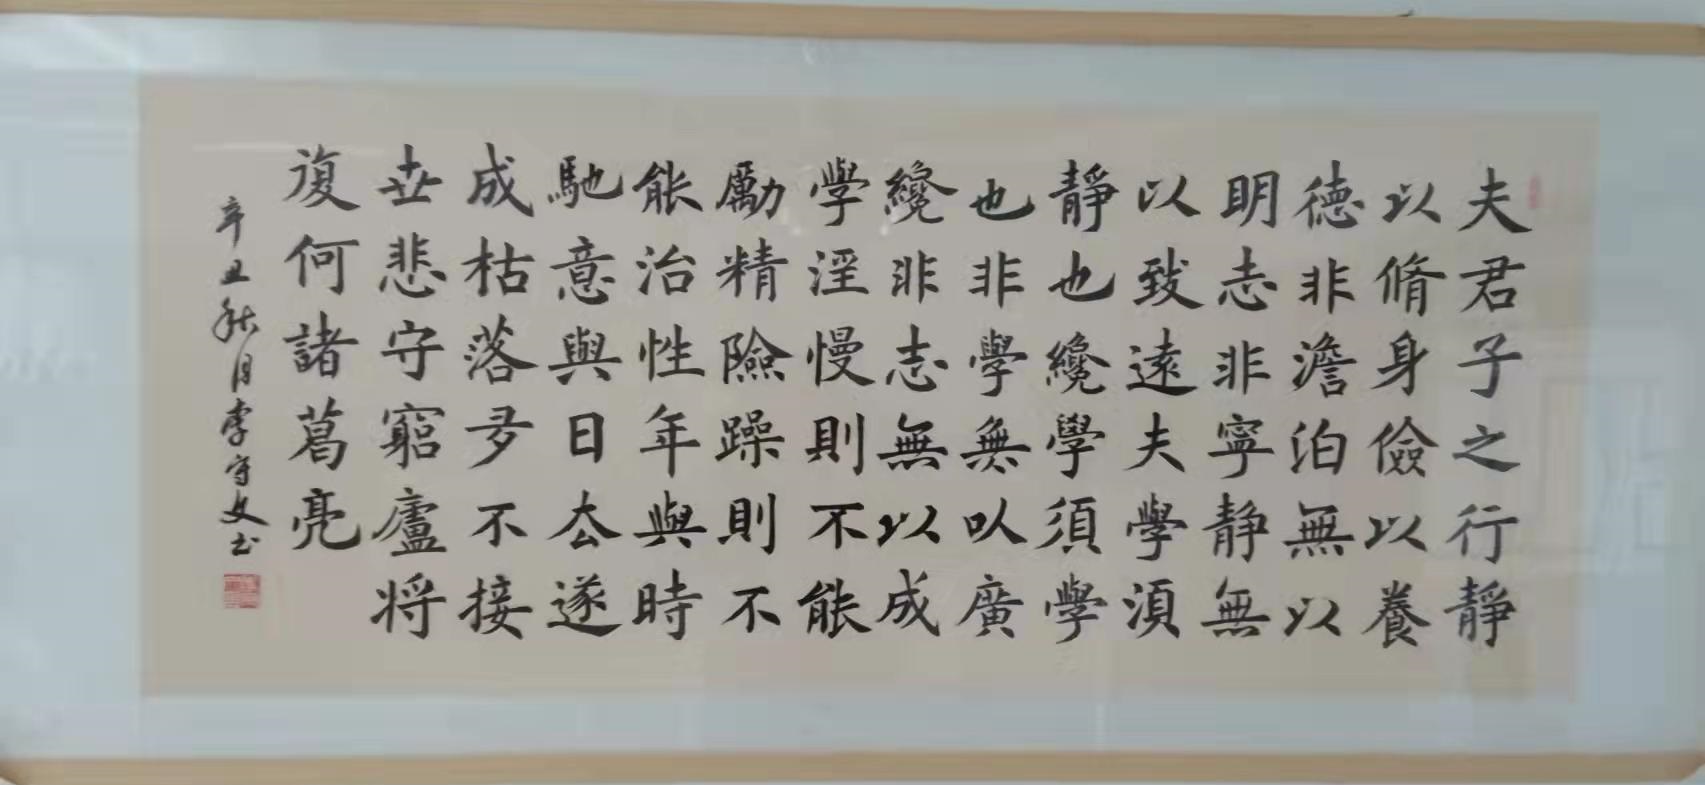 夫君子之行靜
以脩身儉以養
德非澹泊無以
明志非寧静無
以致遠夫學須
靜也纔學須學
也非學無以廣
纔非志無以成
學淫慢則不能
勵精險躁則不
能治性年與時
馳意與日去遂
成枯落多不接
世悲守窮廬将
復何諸葛亮
辛丑秋月李守文书